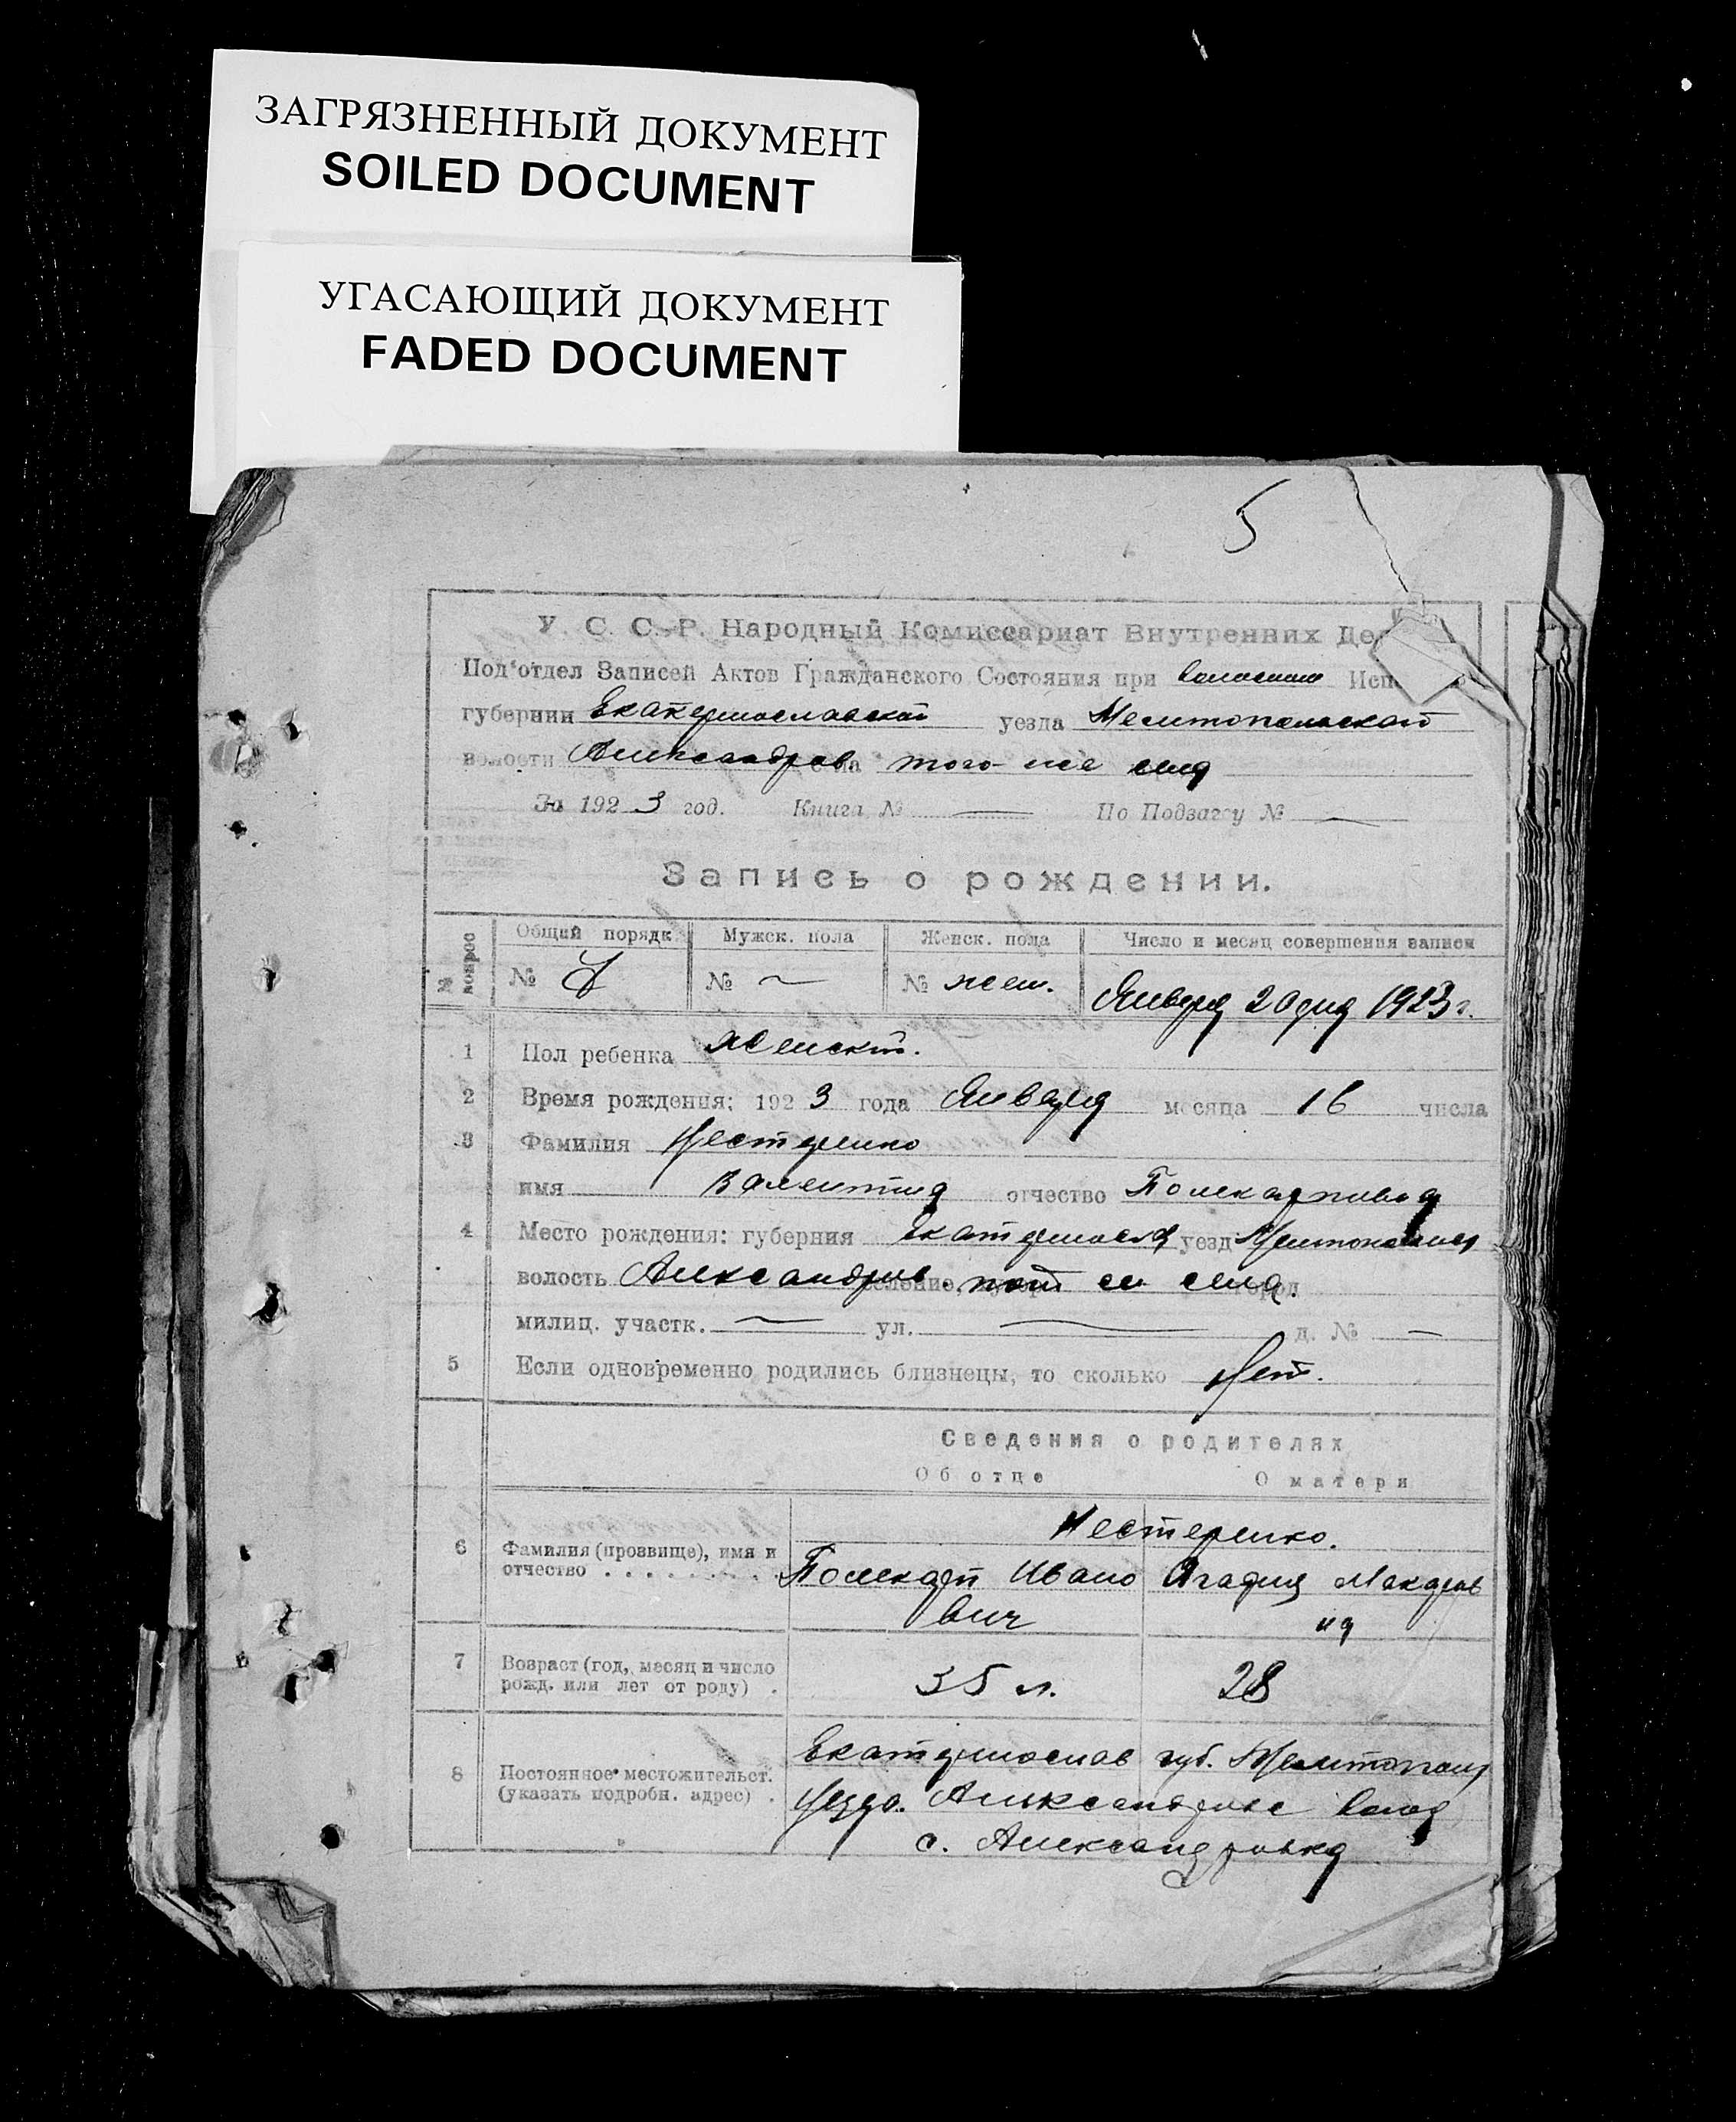 ЗАГРЯЗНЕННЫЙ ДОКУМЕНТ
SOILED DOCUMENT
УГАСАЮЩИЙ ДОКУМЕНТ
FADED DOCUMENT
5
У. С. С. Р. Народный Комиссариат Внутренних Де
Под'отдел Записей Актов Гражданского Состояния при Исп
губернии Екатеринославской уезда Мелитопольской
волости Александров села того-же села
За 1923 год. Книга № — По Подзагсу № —
Запись о рождении.
№ вопрос Общий порядк. Мужск. пола Женск. пола Число и месяц совершения записи
№ № ~ № жен. Января 20 дня 1923 г.
1 Пол ребенка женскт.
2 Время рождения: 1923 года Января месяца 16 числа
3 Фамилия Нестеренко
имя Валентина отчество Поликарповна
4 Место рождения: губерния Екатериносл уезд
волость Александров. селение, села.
милиц. участк. — ул. — д. № —
5 Если одновременно родились близнецы, то сколько Нет.
Сведения о родителях
Об отце О матери
Нестеренко.
6 Фамилия (прозвище), имя и
отчество . . . . . . . . . Поликарп Ивано Макаров
вич на
7 Возраст (год, месяц и число
рожд. или лет от роду) . 35 л. 28
8 Постоянное местожительст.
(указать подробн. адрес) . Екатеринослав губ. Мелитопол
уезда. Александровс волос
с. Александровка